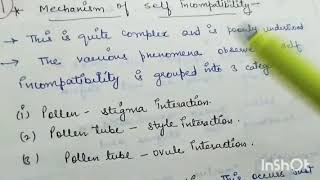 Mechanism of Self Incompatibility
→ This is quite complex and is poorly understood
→ The various phenomena observe self
incompatibility is grouped into 3
(1) Pollen - stigma Interaction.
(2) Pollen tube - style Interaction.
(3) Pollen tube - ovule Interaction.
This occurs just
InShOt